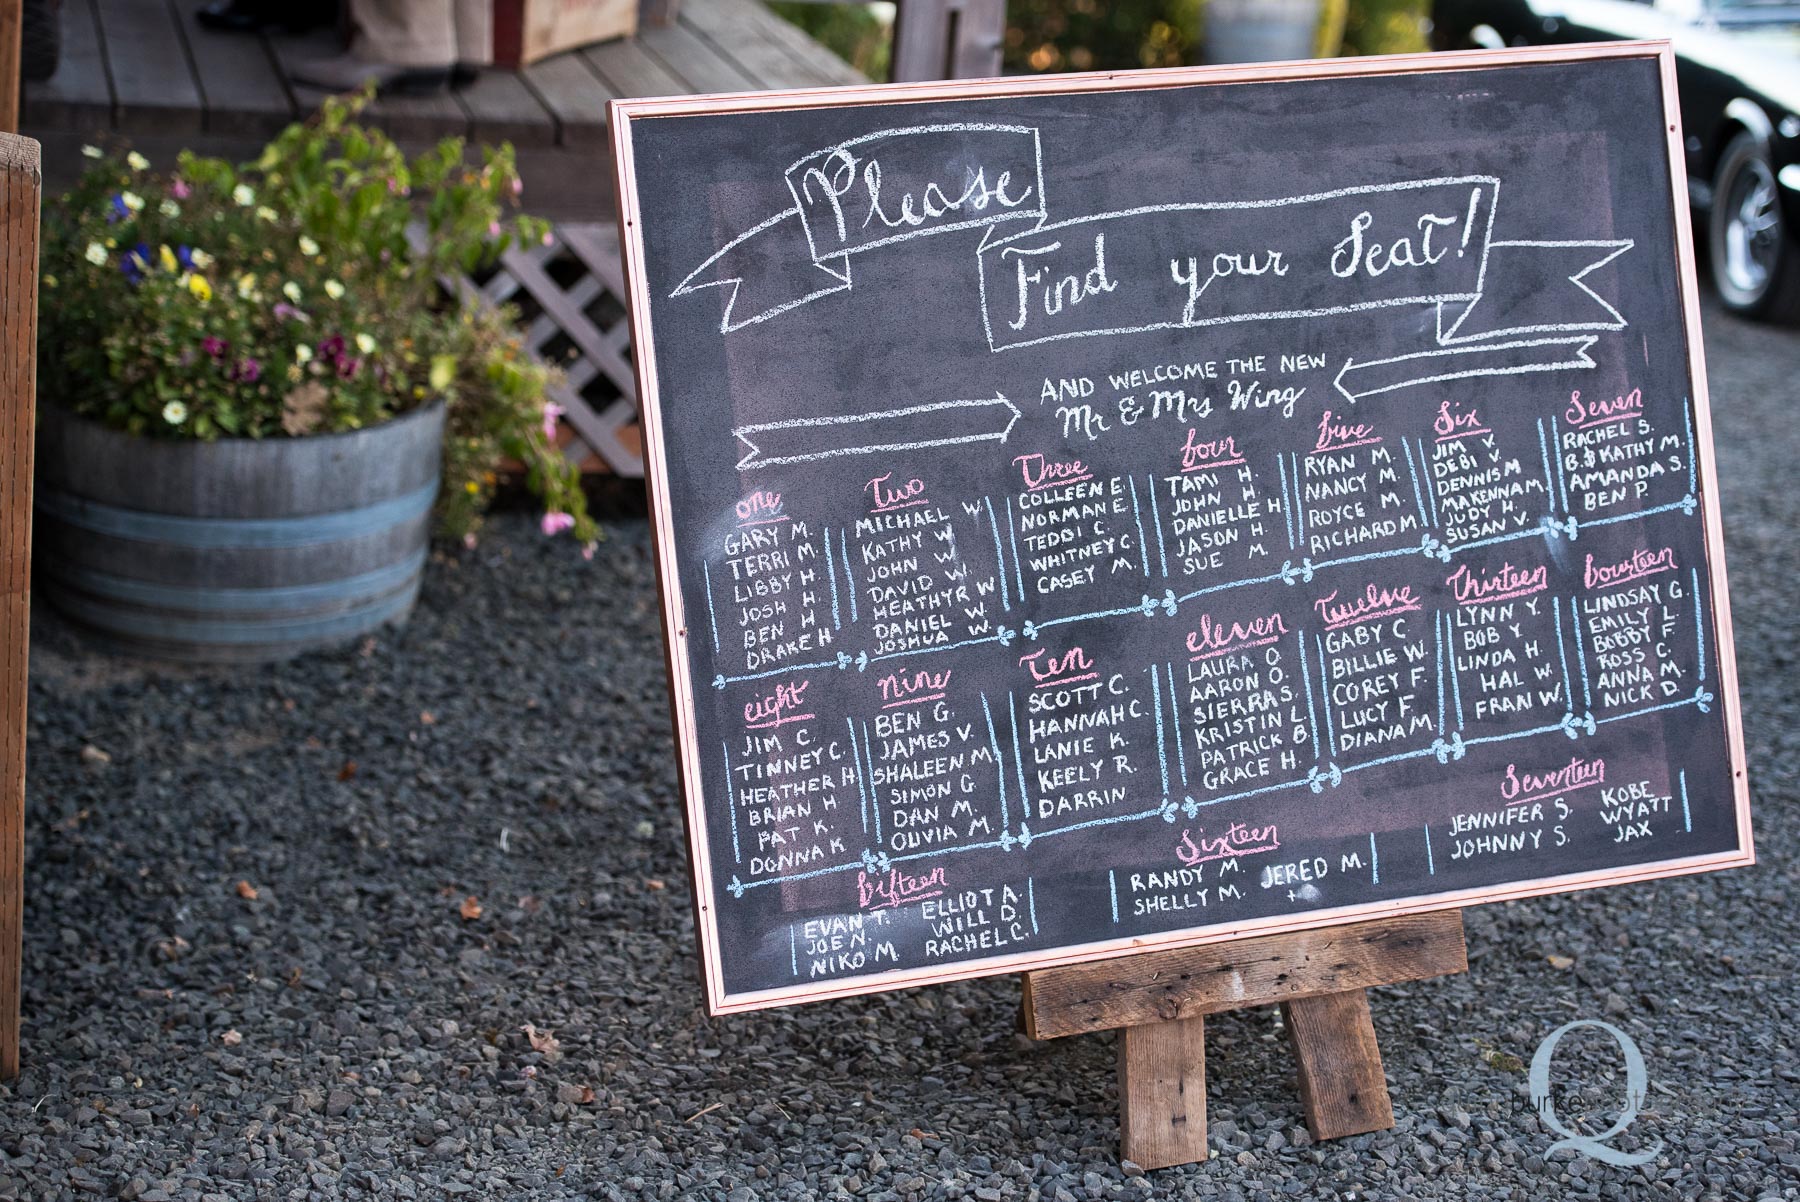 Please
Find your Seat!
AND WELCOME THE NEW
Mr & Mrs Wing
one
GARY M.
TERRI M.
LIBBY H.
JOSH H.
BEN H
DRAKE H
Two
MICHAEL W.
KATHY W
JOHN W
DAVID W.
HEATHYR W
DANIEL W.
JOSHUA W.
Three
COLLEEN E.
NORMAN E.
TEDDI C.
WHITNEY C.
CASEY M.
four
TAMI H.
JOHN H.
DANIELLE H
JASON H
SUE M.
five
RYAN M.
NANCY M.
ROYCE M.
RICHARD M
Six
JIM V.
DEBI V.
DENNIS M
MAKENNA M.
JUDY H.
SUSAN V.
Seven
RACHEL S.
B.& KATHY M.
AMANDA S.
BEN P.
eight
JIM C.
TINNEY C.
HEATHER H
BRIAN H
PAT K.
DONNA K
nine
BEN G.
JAMES V.
SHALEEN M
SIMON G
DAN M.
OLIVIA M.
Ten
SCOTT C.
HANNAH C.
LANIE K.
KEELY R.
DARRIN
eleven
LAURA O.
AARON O.
SIERRA S.
KRISTIN L
PATRICK B.
GRACE H.
Twelve
GABY C
BILLIE W.
COREY F.
LUCY F
DIANA M.
Thirteen
LYNN Y.
BOB Y
LINDA H.
HAL W.
FRAN W.
fourteen
LINDSAY G.
EMILY L.
BOBBY F.
ROSS C.
ANNA M.
NICK D.
fifteen
EVAN T.
JOE N.
NIKO M.
ELLIOT A.
WILL D.
RACHEL C.
Sixteen
RANDY M.
SHELLY M.
JERED M.
+
Seventeen
JENNIFER S.
JOHNNY S.
KOBE
WYATT
JAX
Q